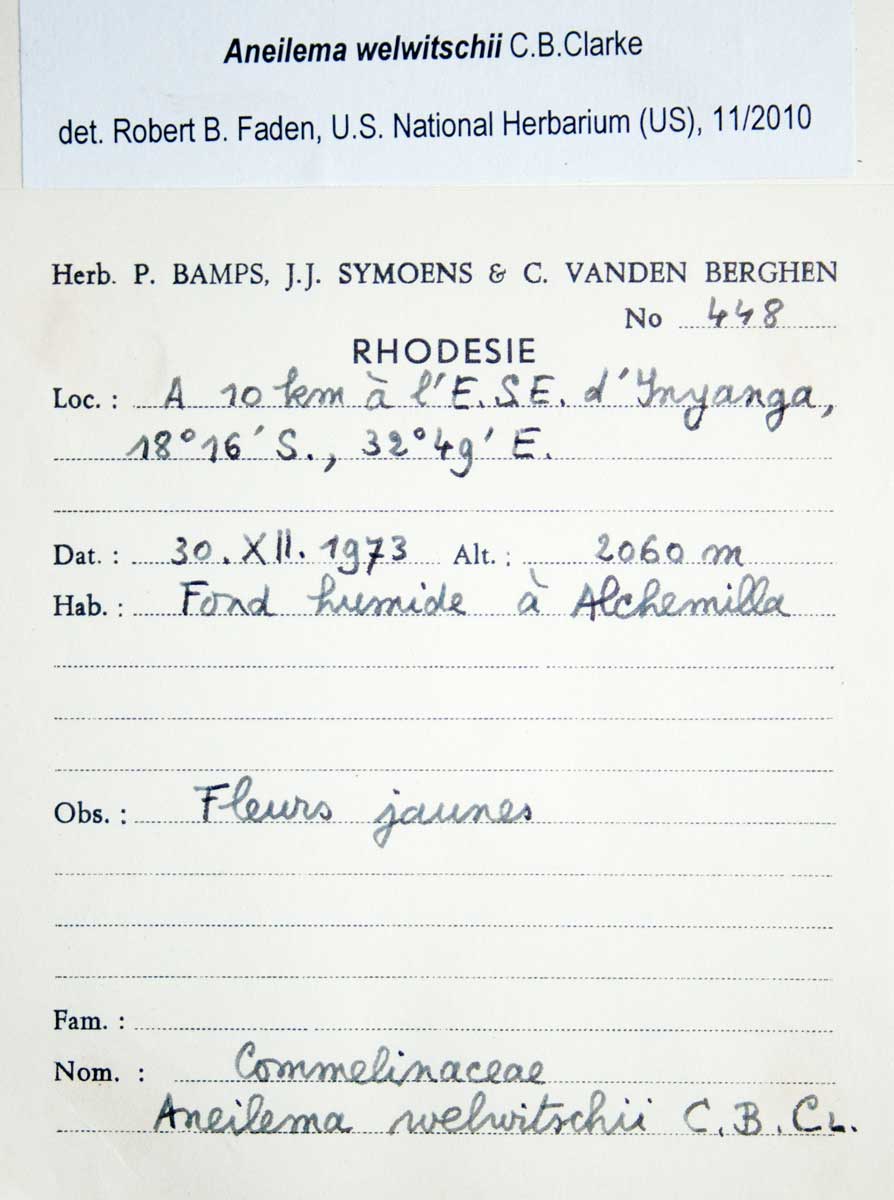 Aneilema welwitschii C.B.Clarke
det. Robert B. Faden, U.S. National Herbarium (US), 11/2010
Herb. P. BAMPS, J.J. SYMOENS & C. VANDEN BERGHEN
No 448
RHODESIE
Loc. : A 10 km à l'E.S.E. d'Inyanga,
18°16' S., 32°49' E.
Dat. : 30.XII.1973 Alt. : 2060 m
Hab. : Fond humide à Alchemilla
Obs. : Fleurs jaunes
Fam. :
Nom. : Commelinaceae
Aneilema welwitschii C.B.CL.